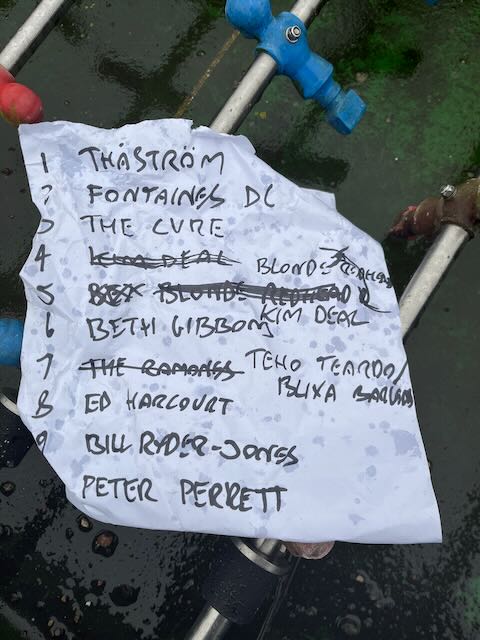 1 THÅSTRÖM
2 FONTAINES DC
3 THE CURE
4 KIM DEAL BLONDE REDHEAD
5 BLONDE REDHEAD KIM DEAL
6 BETH GIBBONS
7 THE RAMONES TEHO TEARDO/
BLIXA BARGELD
8 ED HARCOURT
9 BILL RYDER-JONES
PETER PERRETT